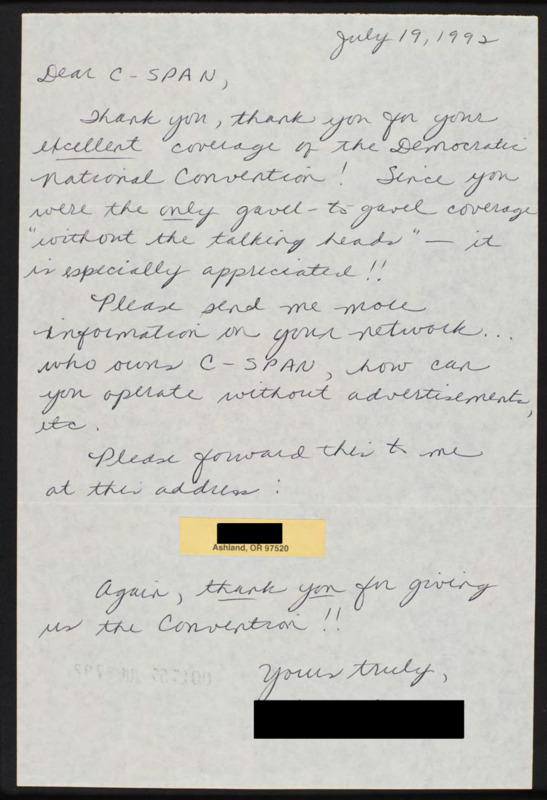 July 19, 1992
Dear C-SPAN,
Thank you, thank you for your
excellent coverage of the Democratic
National Convention! Since you
were the only gavel-to gavel coverage
"without the talking heads" — it
is especially appreciated!!
Please send me more
information on your network...
who owns C-SPAN, how can
you operate without advertisements,
etc.
Please forward this to me
at this address:
Ashland, OR 97520
Again, thank you for giving
us the Convention!!
Yours truly,